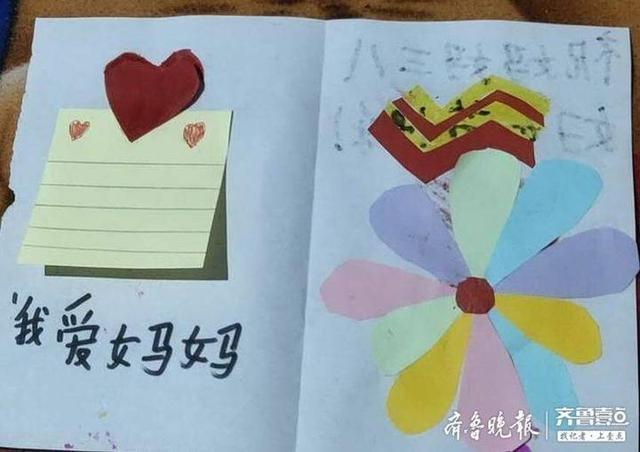 我爱妈妈
祝妈妈三八
妇
齐鲁晚报
齐鲁壹点
找记者·上壹点